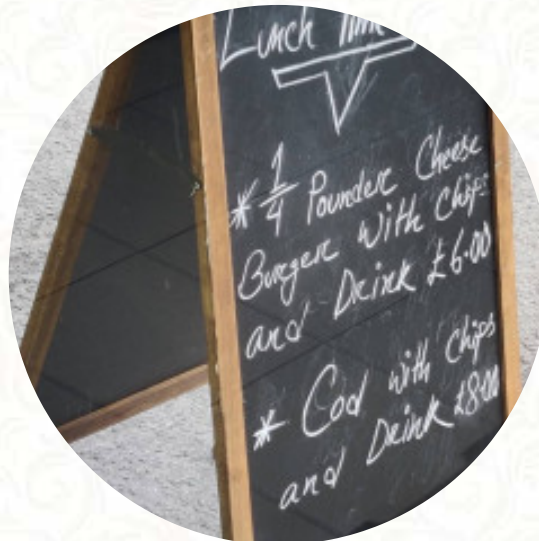 Lunch Time
* 1/4 Pounder Cheese
Burger with Chips
and Drink £6.00
* Cod with Chips
and Drink £8.00